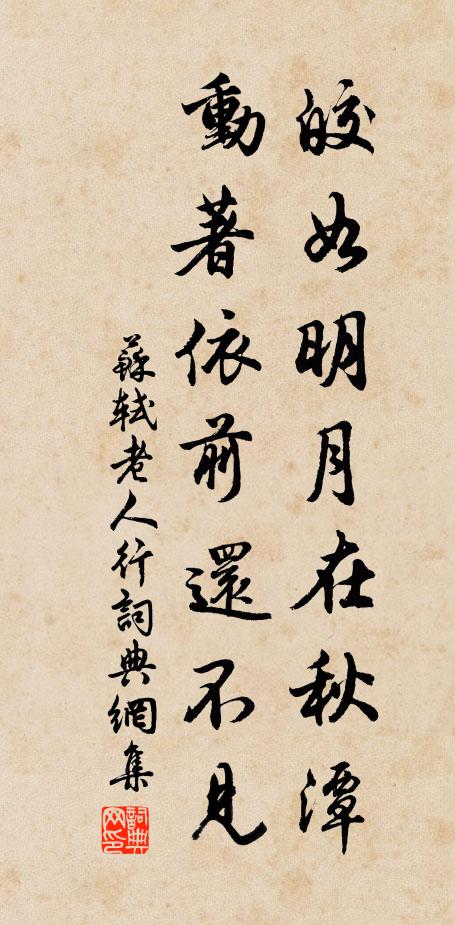 皎如明月在秋潭
動著依前還不見
蘇軾老人行詞典網集
詞典網印